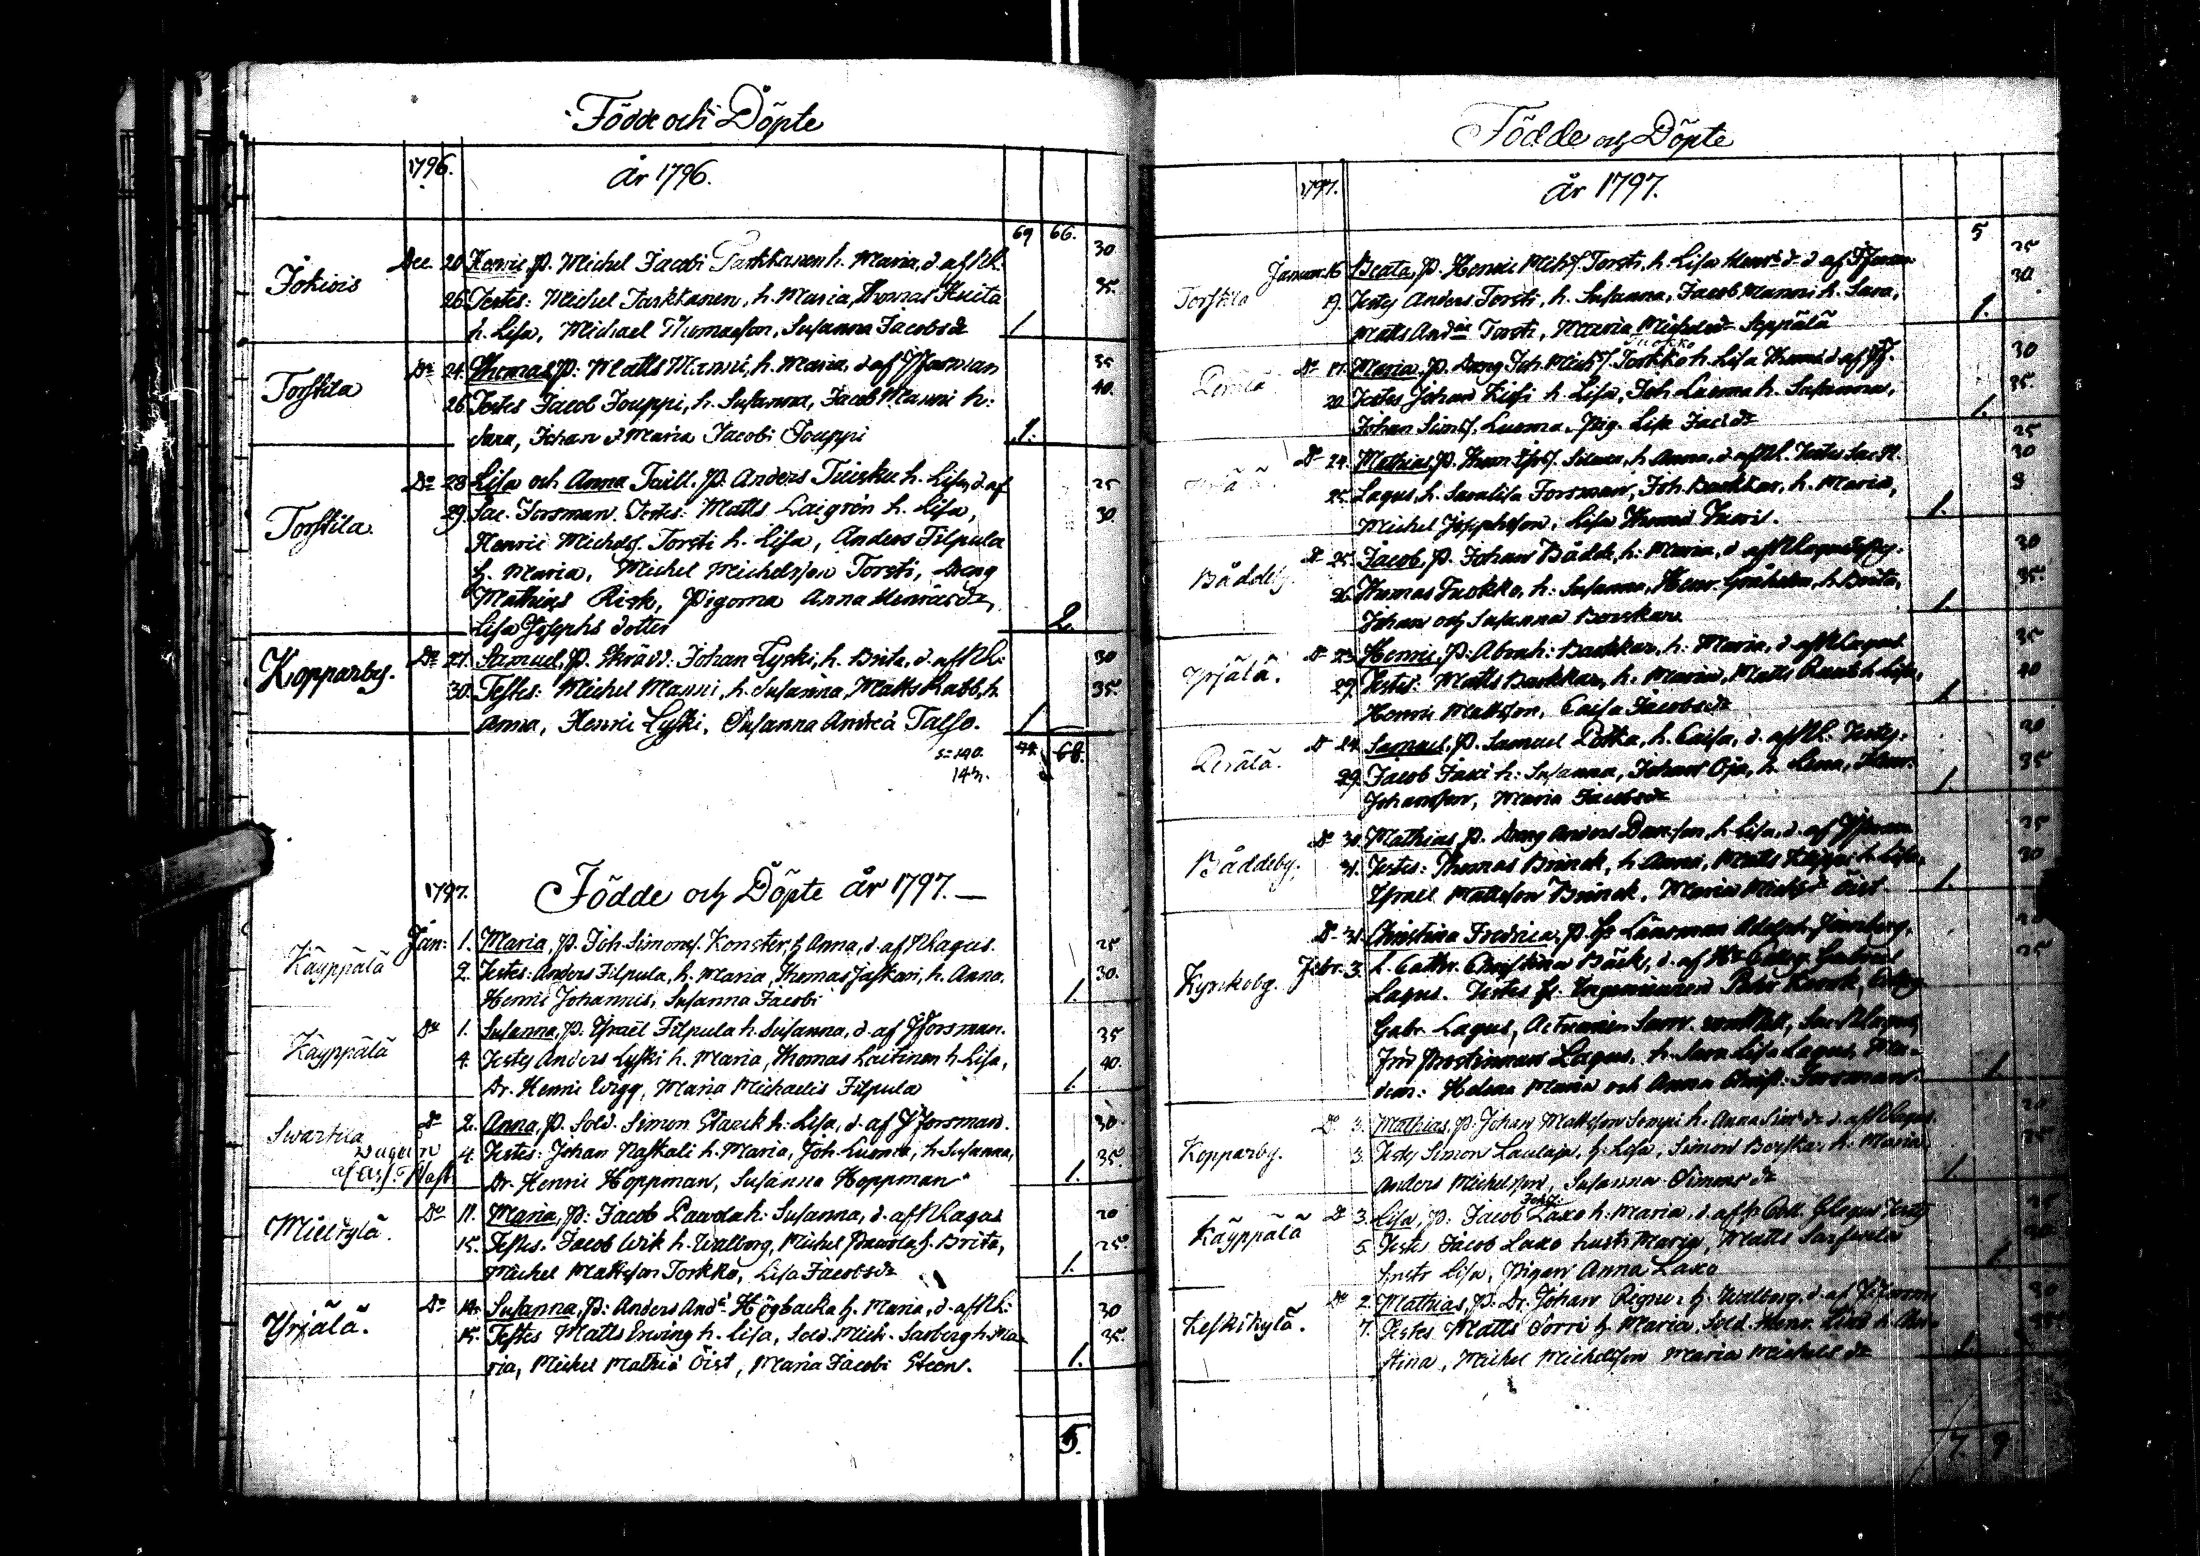 Födde och Döpte
1796. år 1796.
69 66.
Jokiois Dec. 20 Henric, P. Michel Jacobi Parkkanen h. Maria, d. af Kl. 30
26 Testes: Michel Parkkanen, h. Maria, Thomas Knita 35.
h. Lisa, Michael Thomasson, Susanna Jacobs dr 1
Torstila Do 24. Thomas, P: Matts Manni, h. Maria, d. af Forsman 35
26 Testes Jacob Jouppi, h. Susanna, Jacob Manni h: 40.
Sara, Johan & Maria Jacobi Jouppi 1.
Torstila. Do 28 Lisa och Anna Tvill. P. Anders Tuisku h. Lisa, d. af 25
29. Sac. Forsman. Testes: Matts Laigrön h. Lisa, 30.
Henric Michelss. Torsti h. Lisa, Anders Filpula
h. Maria, Michel Michelsson Torsti, Dreng
Mathias Risk, Pigorna Anna Henrics dr,
Lisa Josephs dotter 2.
Kopparby. Do 27. Samuel, P. Skrädd: Johan Lyski, h. Brita, d. af Kl: 30
30. Testes: Michel Manni, h. Susanna, Matts Rabb, h. 35.
Anna, Henric Lyski, Susanna Andreæ Talso. 1
S = 140. 68.
143.
1797. Födde och Döpte år 1797. —
Käyppälä Jan: 1. Maria, P. Joh. Simons. Konster, h Anna, d. af Kl Lagus. 25
2. Testes: Anders Filpula, h. Maria, Thomas Jaskari, h. Anna. 30.
Henric Johannis, Susanna Jacobi 1.
Käyppälä Do 1. Susanna, P. Israel Filpula h. Susanna, d. af Forsman. 35
4. Testes Anders Lyski h. Maria, Thomas Laitinen h Lisa, 40.
Dr. Henric Wigg, Maria Michaelis Filpula 1.
Swartila Do 2. Anna, P. Sold. Simon Starck h. Lisa, d. af Forsman. 30
4. Testes: Johan Naskali h. Maria, Joh. Luoma, h Susanna, 35.
Dr. Henric Hoppman, Susanna Hoppman 1.
Mieltylä. Do 11. Maria, P: Jacob Pawola h: Susanna, d. af Kl Lagus 20
15. Testes. Jacob Wik h. Walborg, Michel Pawola h. Brita, 25.
Michel Mattsson Torkko, Lisa Jacobs dr 1.
Yrjälä. Do 14. Susanna, P: Anders And: Högbacka h. Maria, d. af Kl: 30
15. Testes Matts Erving h. Lisa, Sold. Mich. Sarberg h. Ma- 35.
ria, Michel Mathiæ Öist, Maria Jacobi Steen. 1.
5.
Födde och Döpte
1797. år 1797.
5
Torstila Januar. 16 Beata, P. Henric Michss. Torsti, h. Lisa Henr: d. d. af Forsm. 25
19. Testes Anders Torsti, h. Susanna, Jacob Manni h. Sara, 30.
Matts Anders Torsti, Maria Michels dr Seppälä 1.
Perälä Do 17. Maria, P. Dreng Joh. Michss. Torkko h. Lisa Thoms d. af 30
20. Testes Johan Kisi h. Lisa, Joh. Luoma h. Susanna, 35.
Johan Simss. Luoma, Pig. Lisa Jac: dr 1.
Do 24. Mathias, P. h. Anna, d. af Kl. Testes Sac. 25 30
25. Lagus, h. Saralisa Forsman, Joh. Backkar, h. Maria,
Michel Josephsson, Lisa Thomæ 1.
Båddeby. Do 25. Jacob, P. Johan Bådde, h. Maria, d. af Kl Lagus 30
26. Thomas Tuokko, h: Susanna, Henr. Granholm, h Brita, 35.
Johan och Susanna Borskar 1.
Yrjälä. Do 23. Henric, P: Abrah: Backkar, h: Maria, d. af Kl Lagus 35
29. Testes: Matts Backkar, h. Maria, Matts h. Lisa, 40
Henric Mattsson, Caisa Jacobs dr 1.
Perälä. Do 24. Samuel, P. Samuel Potka, h. Caisa, d. af Kl. Testes. 30
29. Jacob h: Susanna, Johan Oja, h. Lena, Henr: 35
Johansson, Maria Jacobs dr 1.
Båddeby. Do 30. Mathias, P. Dreng Anders h Lisa, d. af Forsman 25
31. Testes: Thomas Brinck, h. Anna, Matts h. Lisa, 30
Israel Mattsson Brinck, Maria Michs dr Öist 1.
Kyrckoby. Do 31. Christina Fredrica, P. Hr Länsman Adolph
Febr. 3. h. Cathr. Christina Bäck, d. af Hr Gabriel 25
Lagus. Testes Hr
Gabr. Lagus,
Lagus, h. Sara Lisa Lagus, Ma-
dem: Helena Maria och Anna Christ: Forsman. 1
Kopparby. Do 3. Mathias, P. Johan Mattsson h. Anna dr d. af Kl Lagus. 30
3. Testes Simon Laulaja, h. Lisa, Simon Borskar h. Maria 35
Anders Michelsson, Susanna Simons dr 1.
Käyppälä Do 3. Lisa, P. Jacob Laxo h. Maria, d. af G Lagus 25
5. Testes Jacob Laxo hustr. Maria, Matts 30
hustr Lisa, Pigan Anna Laxo 1
Keskikylä. Do 2. Mathias, P. Dr. Johan h. Walborg, d. af Forsm 30
7. Testes Matts Torri h. Maria, Sold. Henr. Lind h. Chri- 35
stina, Michel Michelsson Maria Michels dr 1
7. 9